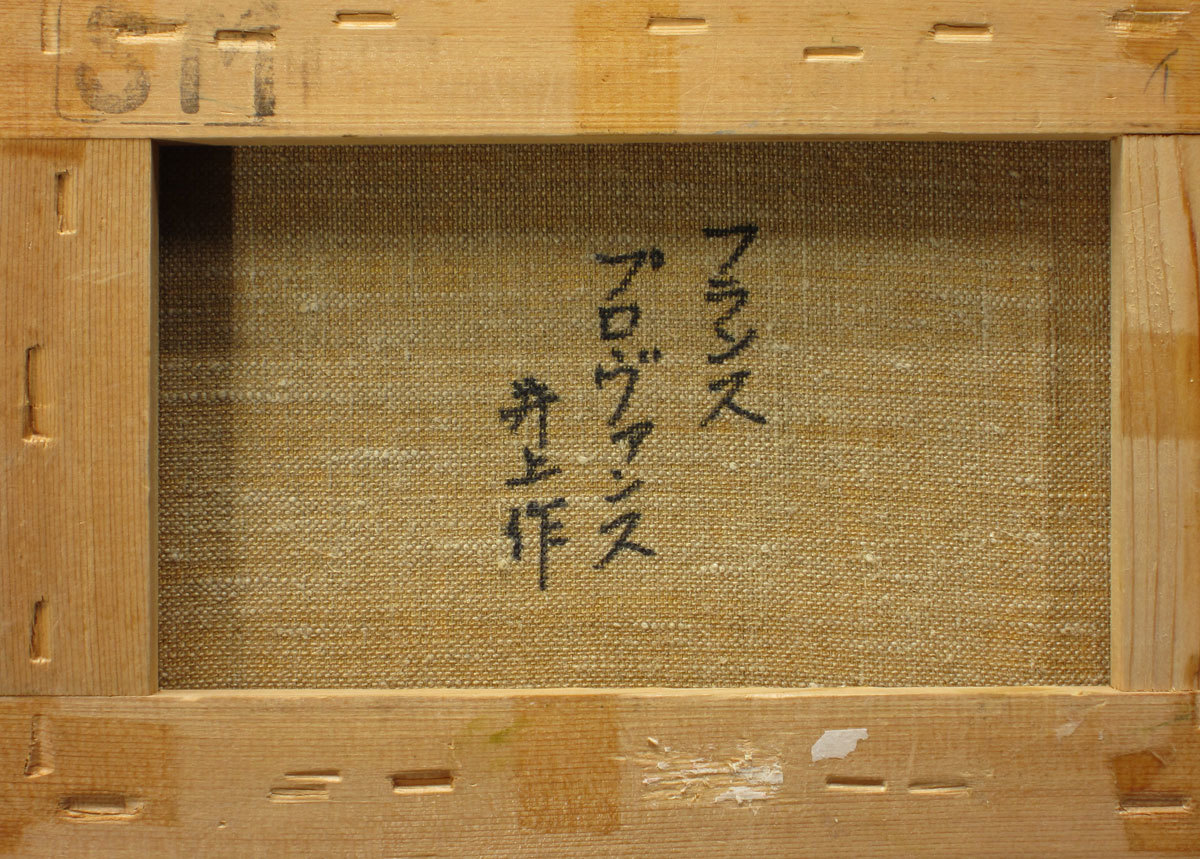 SM
フランス
プロヴァンス
井上作